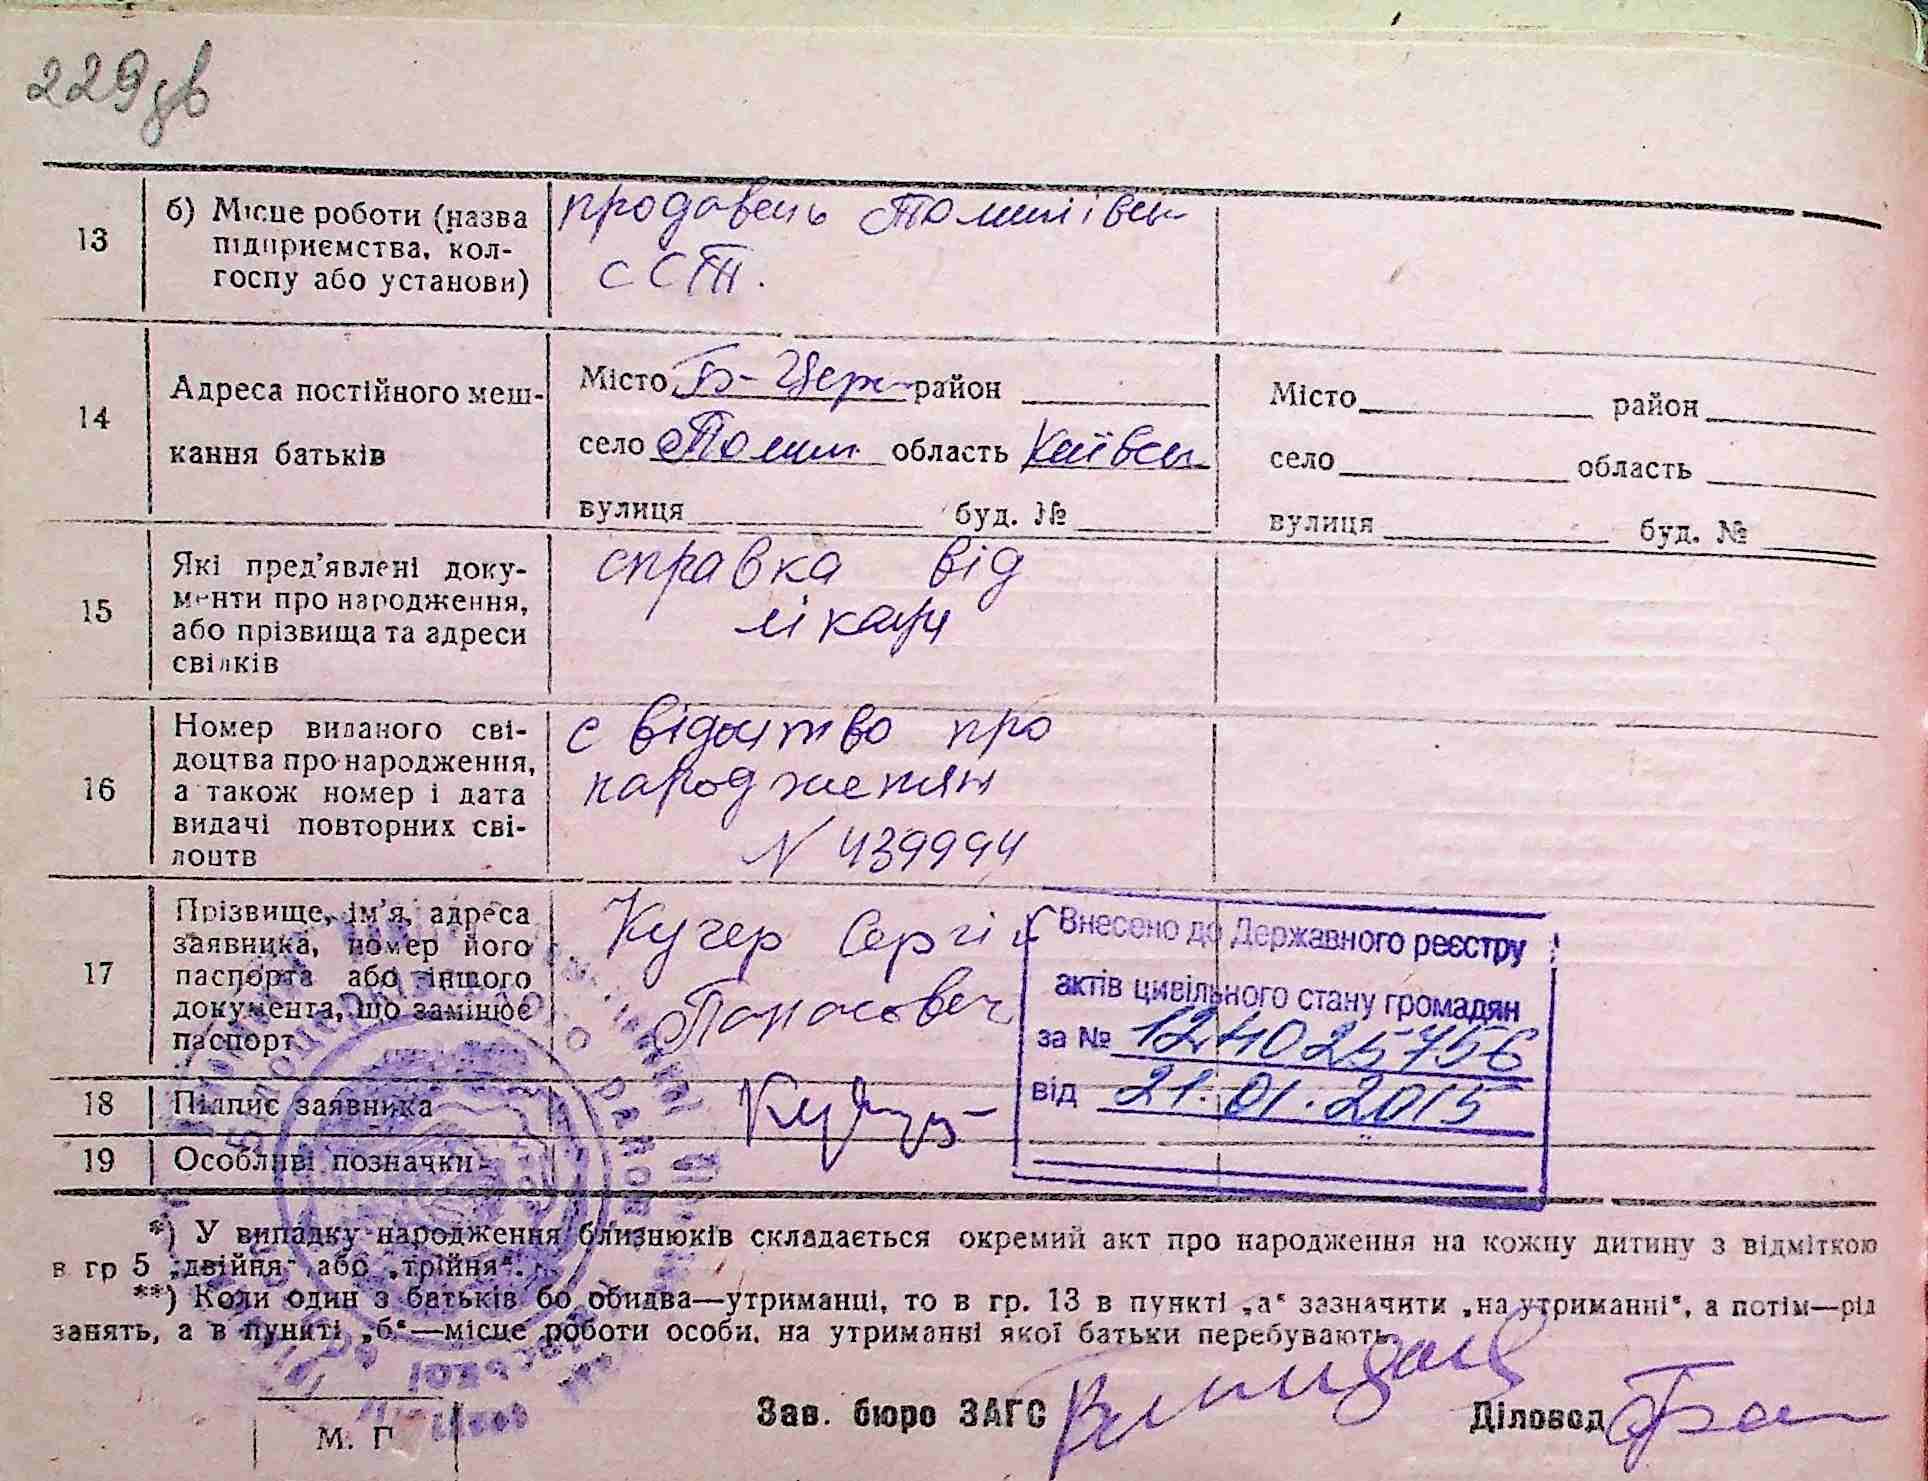 229 зв
13
б) Місце роботи (назва
підприємства, кол-
госпу або установи)
продавець Томилівськ
ССТ.
14
Адреса постійного меш-
кання батьків
Місто Б-Церк район
село Томил область Київськ
вулиця буд. №
Місто район
село область
вулиця буд. №
15
Які пред'явлені доку-
менти про народження,
або прізвища та адреси
свідків
справка від
лікаря
16
Номер виданого сві-
доцтва про народження,
а також номер і дата
видачі повторних сві-
доцтв
свідоцтво про
народження
N 439994
17
Прізвище, ім'я, адреса
заявника, номер його
паспорта або іншого
документа, що замінює
паспорт
Кучер Сергій
Панасович
Внесено до Державного реєстру
актів цивільного стану громадян
за № 124025756
від 21.01.2015
18
Підпис заявника
19
Особливі позначки
*) У випадку народження близнюків складається окремий акт про народження на кожну дитину з відміткою
в гр 5 „двійня“ або „трійня“.
**) Коли один з батьків бо обидва—утриманці, то в гр. 13 в пункті „а“ зазначити „на утриманні“, а потім—рід
занять, а в пункті „б“—місце роботи особи, на утриманні якої батьки перебувають
Зав. бюро ЗАГС
Діловод
М. П